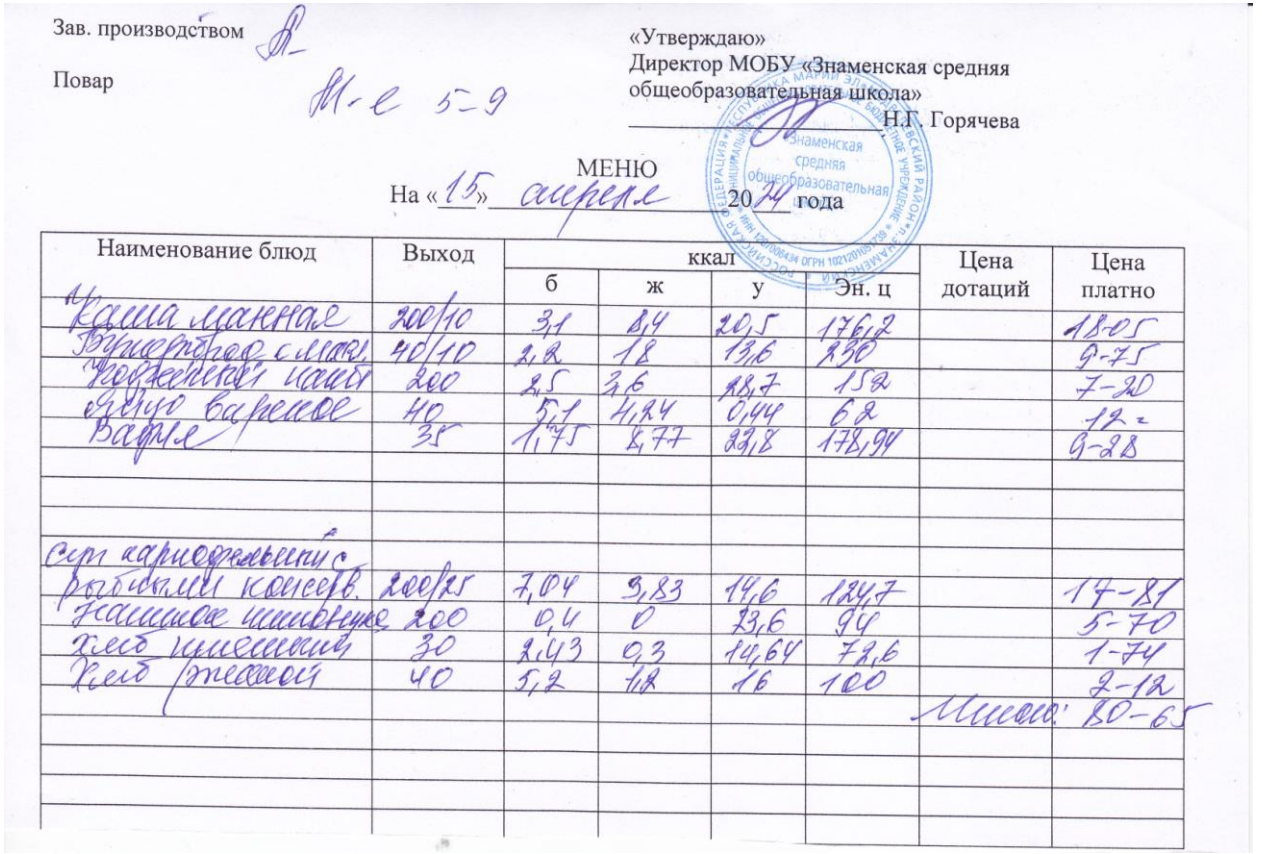 Зав. производством
Повар
5-9
«Утверждаю»
Директор МОБУ «Знаменская средняя
общеобразовательная школа»
Н.Г. Горячева
Знаменская
средняя
общеобразовательная
школа
МЕНЮ
На «15» апреля 2024 года
Наименование блюд Выход ккал Цена дотаций Цена платно
б ж у Эн. ц
Каша манная 200/10 3,1 8,4 20,5 176,2 18-05
Бутерброд с мас. 40/10 2,2 18 13,6 230 9-75
200 2,5 3,6 28,7 152 7-20
Яйцо вареное 40 5,1 4,24 0,44 62 12=
Вафля 35 1,75 8,77 22,8 178,94 9-28
Суп картофельный с
рыбными консерв. 200/25 7,04 3,83 14,6 124,7 17-81
Напиток 200 0,4 0 23,6 94 5-70
Хлеб пшеничный 30 2,43 0,3 14,64 72,6 1-74
Хлеб ржаной 40 5,2 1,2 16 100 2-12
Итого: 80-65